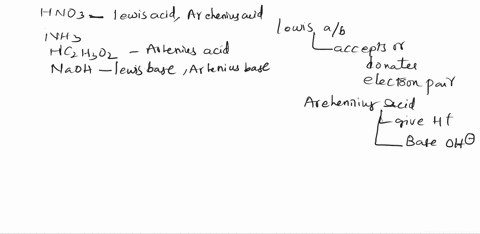 HNO3 — lewis acid, Arehenius acid
NH3
HC2H3O2 — Arhenius acid
NaOH — lewis base, Arhenius base
lewis a/b
accepts or
donates
electron pair
Arehennius acid
give H+
Base OH⊖